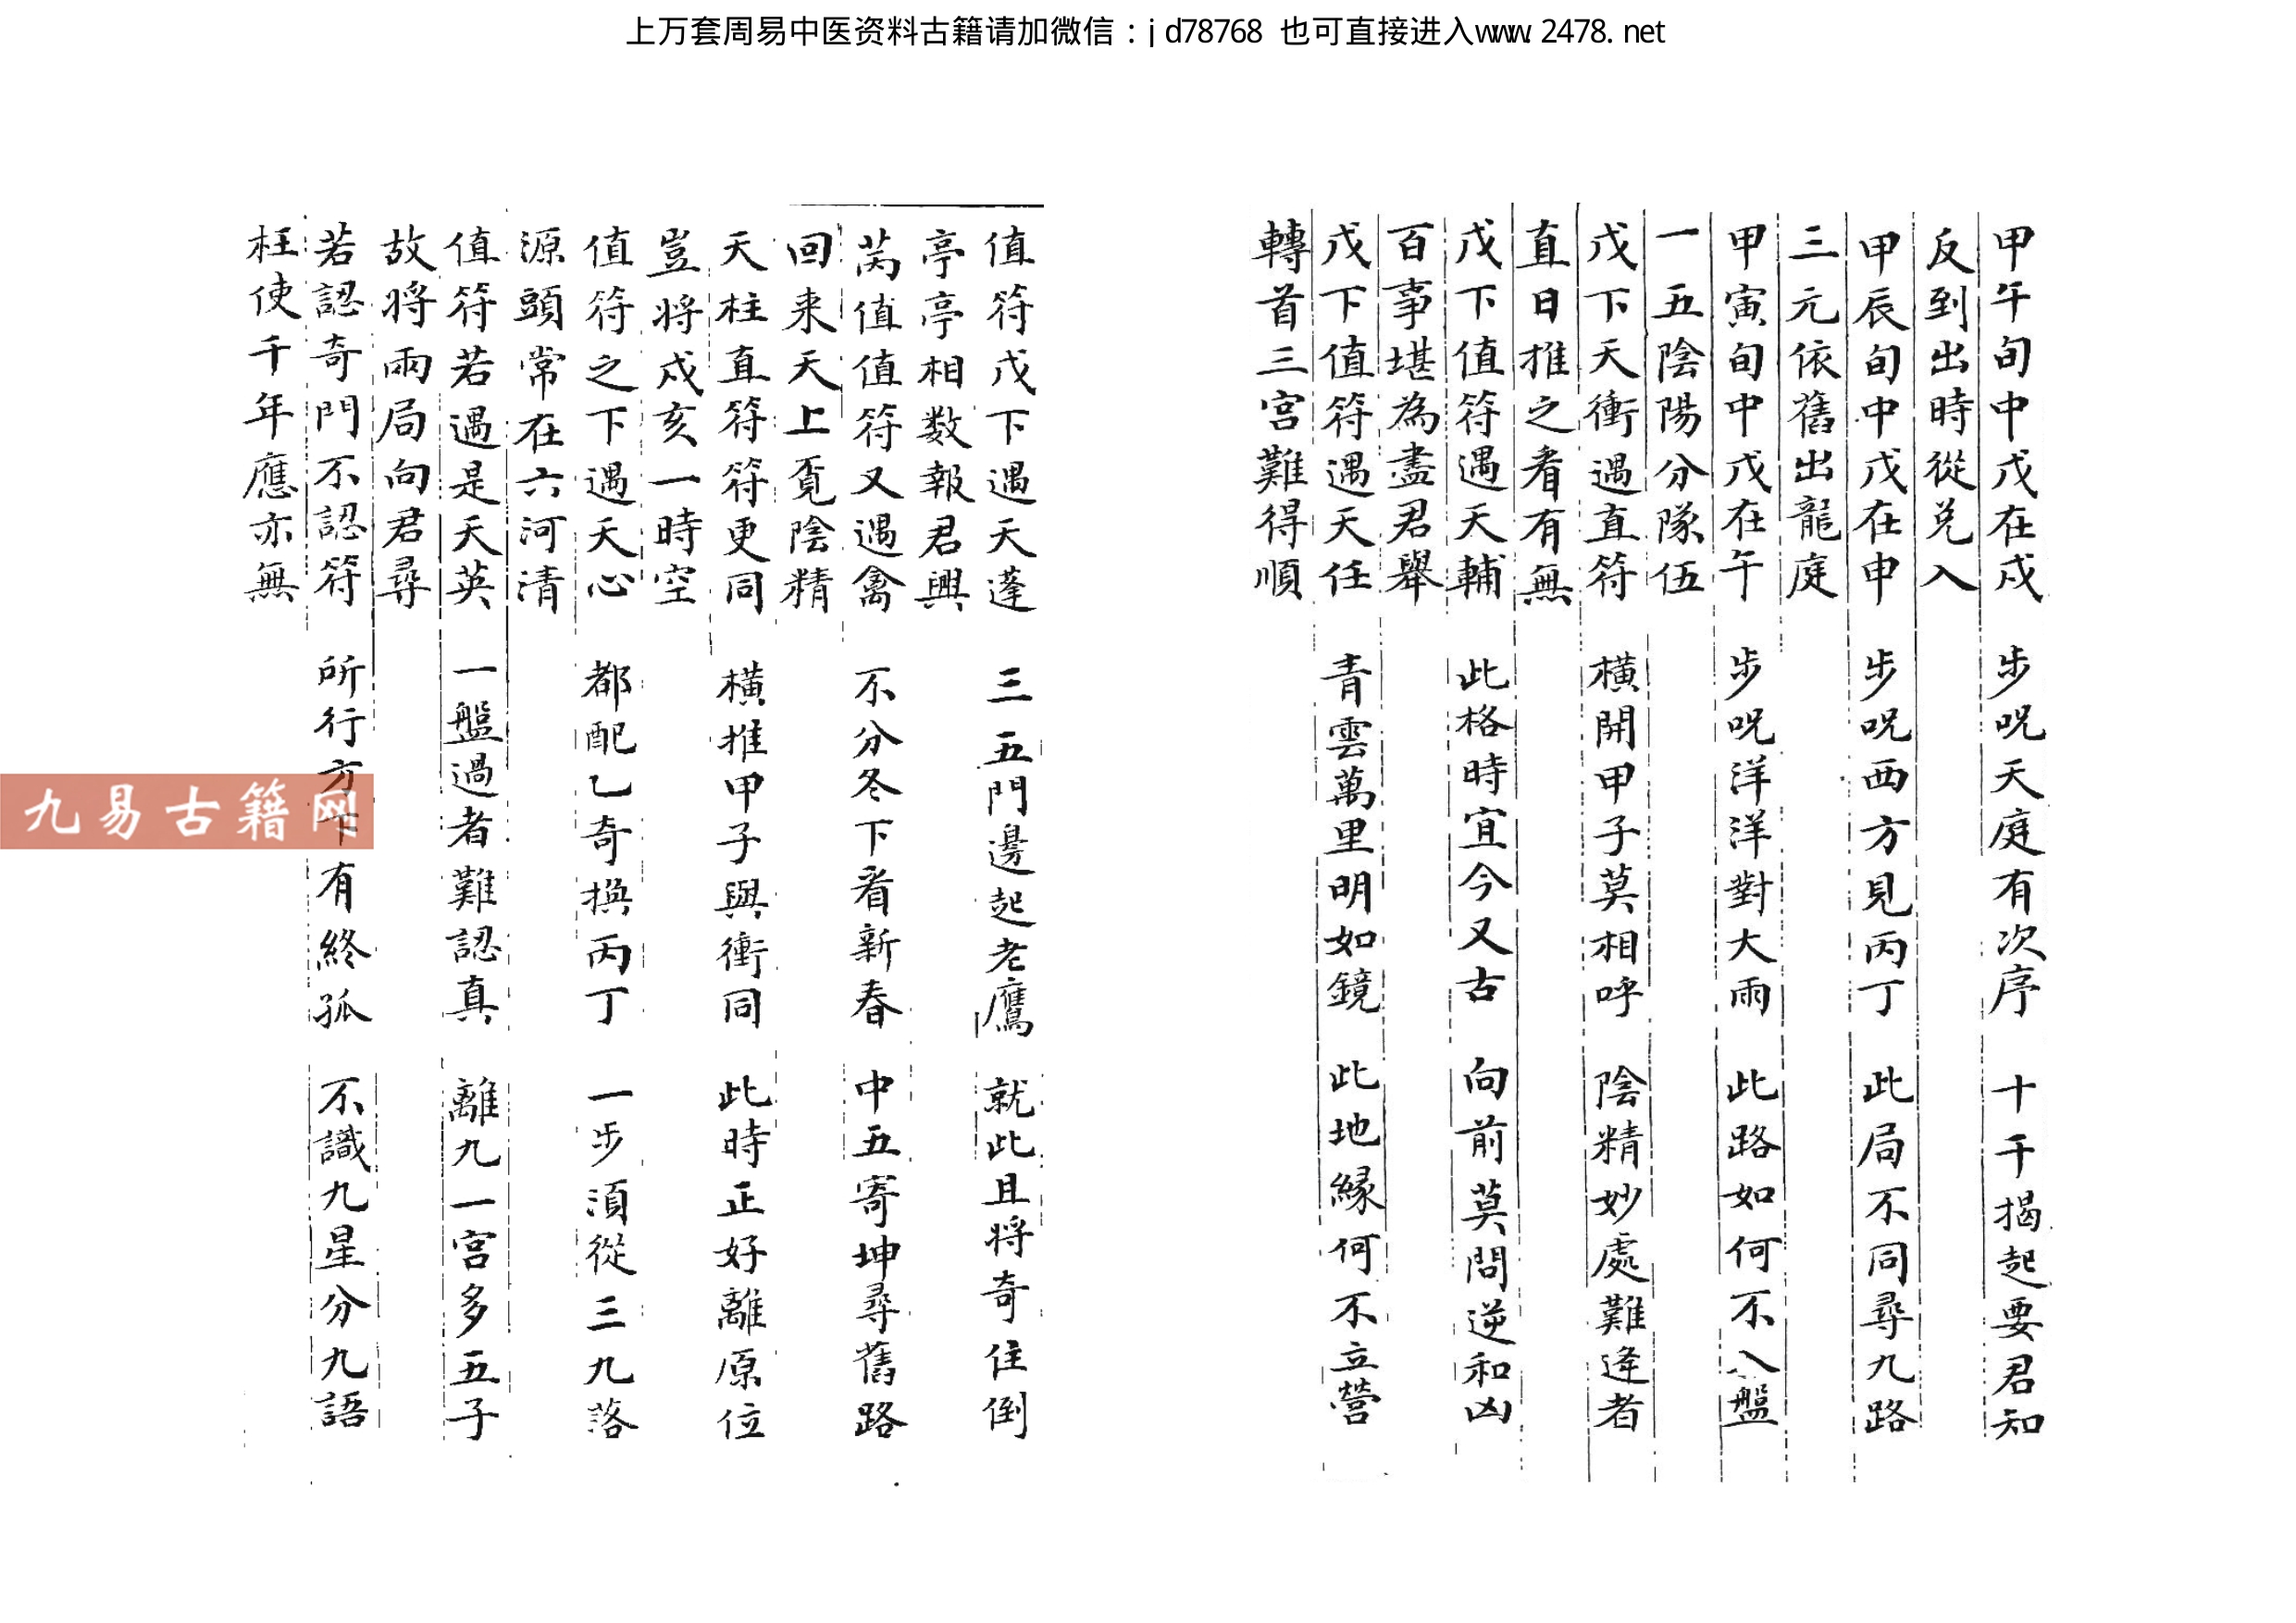 上万套周易中医资料古籍请加微信：jd78768 也可直接进入www.2478.net
甲午旬中戊在戍 步呪天庭有次序 十千揭起要君知
反到出時從兑入
甲辰旬中戊在申 步呪西方見丙丁 此局不同尋九路
三元依舊出龍庭
甲寅旬中戊在午 步呪洋洋對大雨 此路如何不入盤
一五陰陽分隊伍
戊下天衝遇直符 橫開甲子莫相呼 陰精妙處難逢者
直日推之看有無
戊下值符遇天輔 此格時宜今又古 向前莫問逆和凶
百事堪為盡君舉
戊下值符遇天任 青雲萬里明如鏡 此地緣何不立營
轉首三宮難得順
值符戊下遇天蓬 三五門邊起老鷹 就此且将奇住倒
亭亭相数報君興
芮值值符又遇禽 不分冬下看新春 中五寄坤尋舊路
回来天上覓陰精
天柱直符符更同 橫推甲子與衝同 此時正好離原位
豈将戍亥一時空
值符之下遇天心 都配乙奇換丙丁 一步須從三九落
源頭常在六河清
值符若遇是天英 一盤過者難認真 離九一宮多五子
故将兩局向君尋
若認奇門不認符 所行方下有終孤 不識九星分九語
枉使千年應亦無
九易古籍网